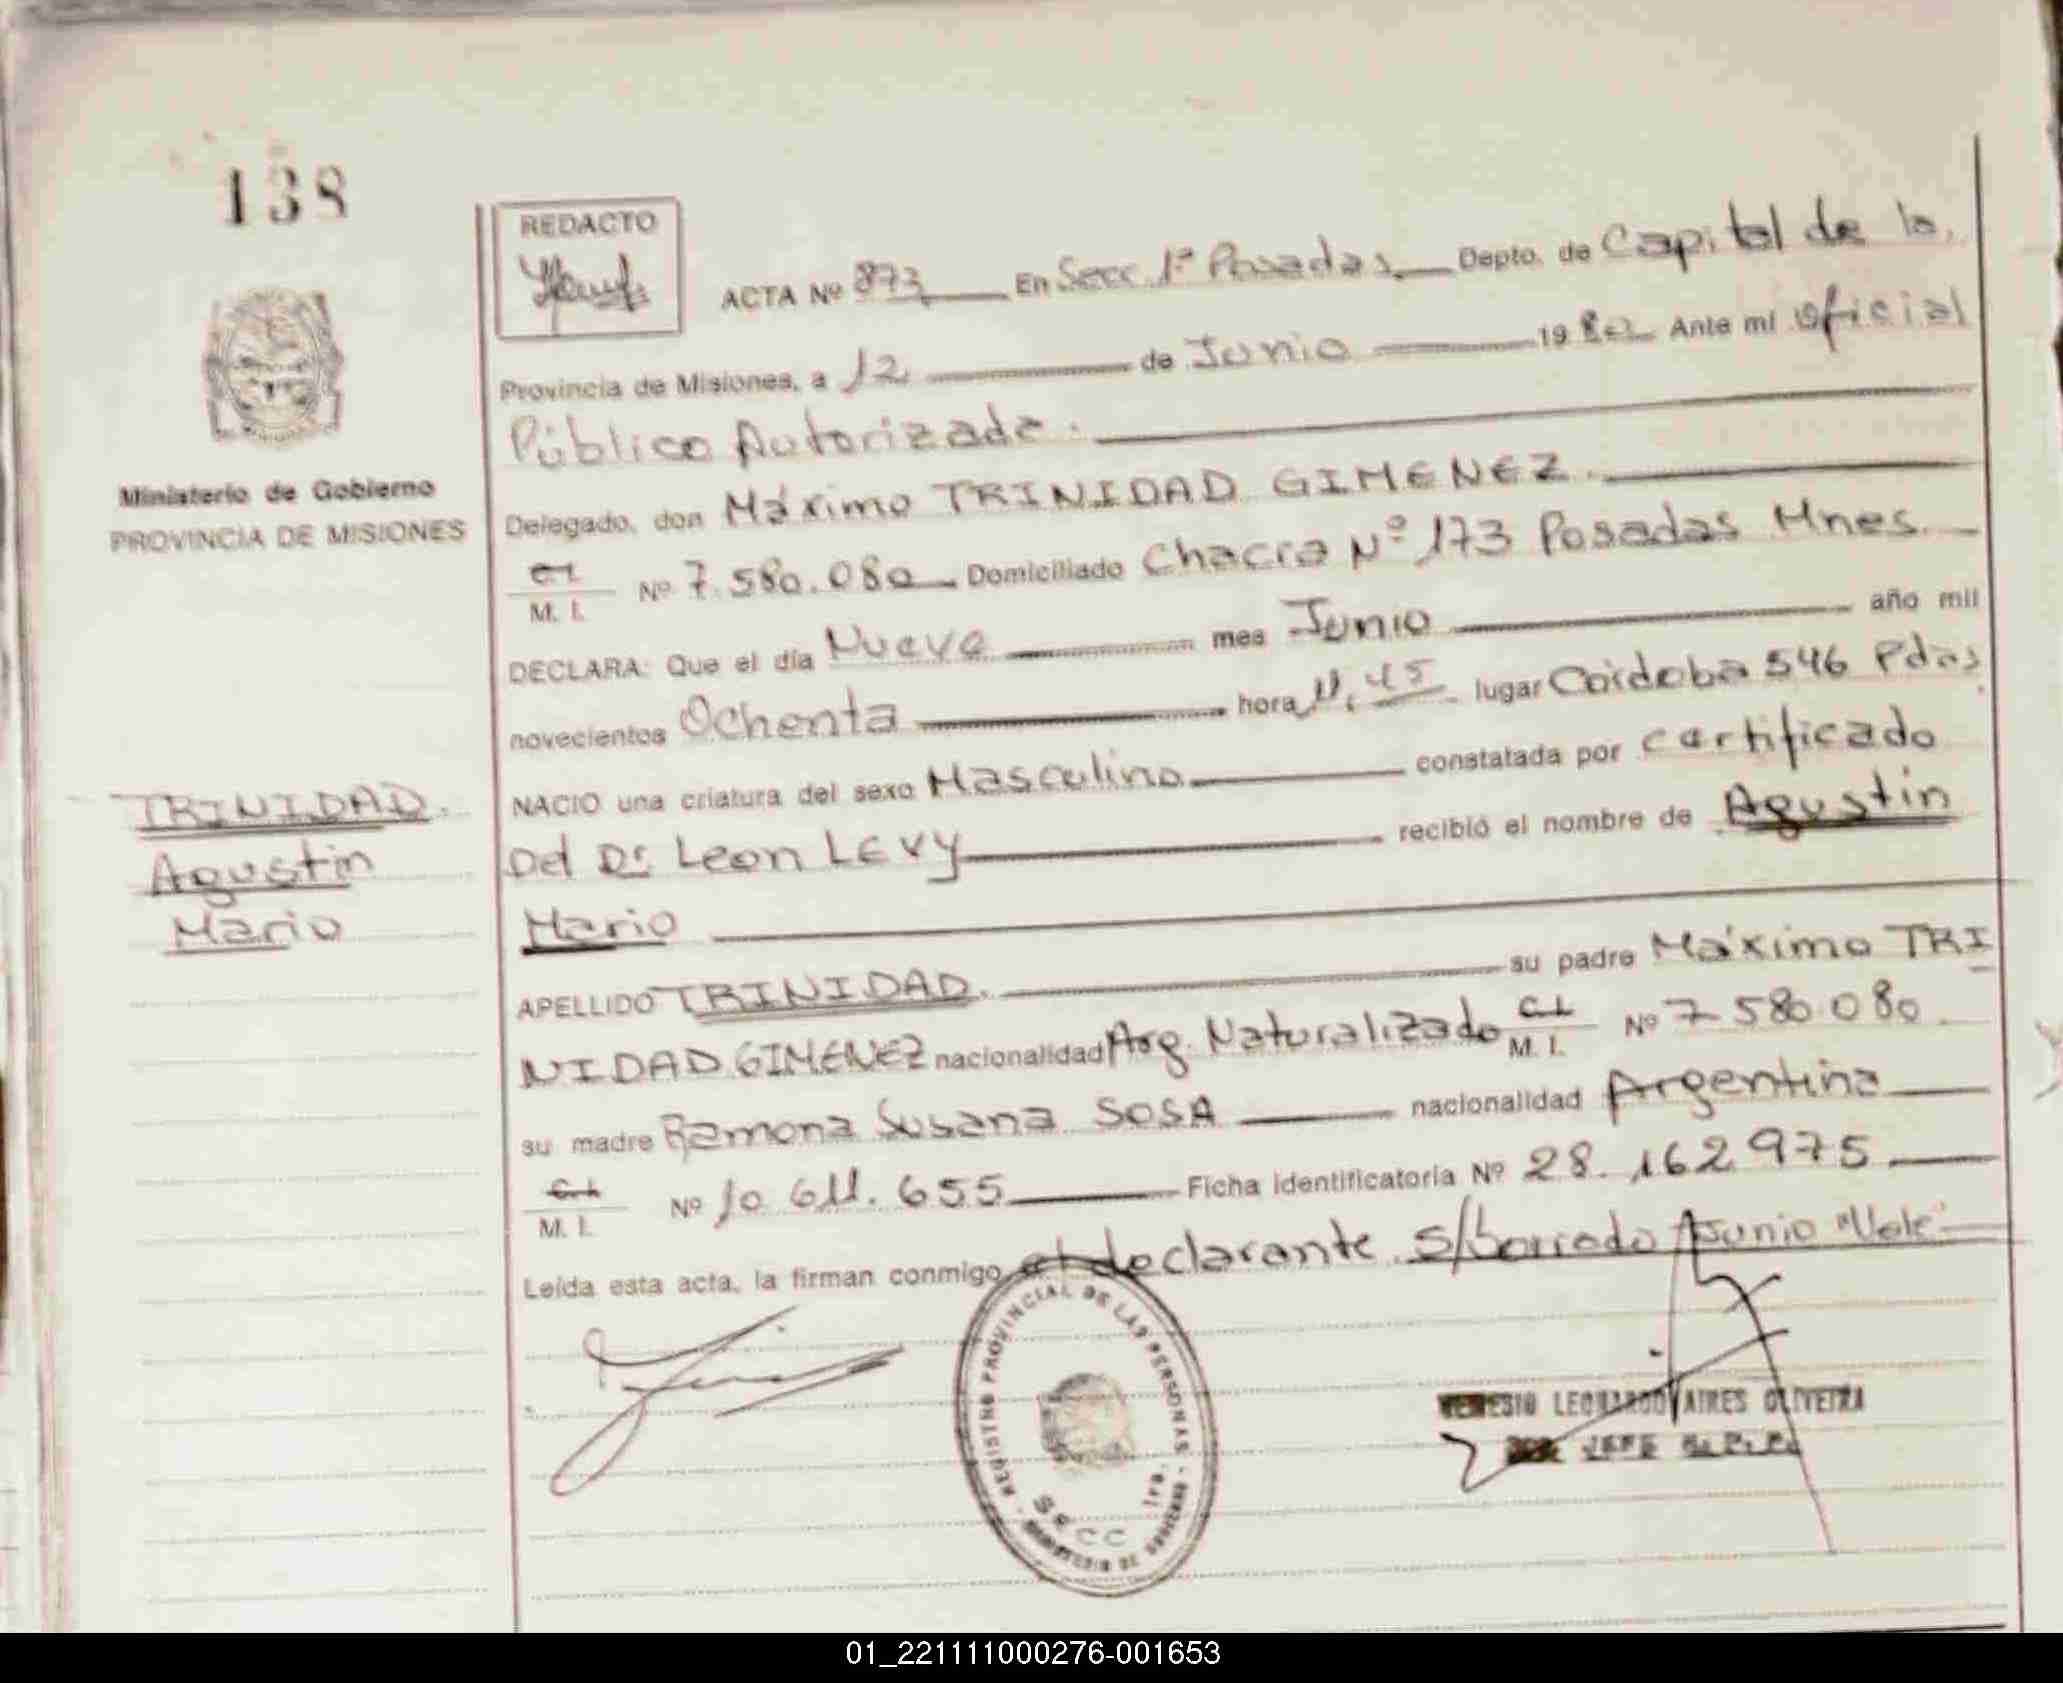 138
REDACTO
ACTA Nº 873 En Secc. 1ª Posadas Depto. de Capital de la
Provincia de Misiones, a 12 de Junio 1980 Ante mí Oficial
Público Autorizado.
Ministerio de Gobierno
PROVINCIA DE MISIONES
Delegado, don Máximo TRINIDAD GIMENEZ.
C.I. M. I. Nº 7.580.080 Domiciliado Chacra Nº 173 Posadas Mnes.
DECLARA: Que el día Nueve mes Junio año mil
novecientos Ochenta hora 11.45 lugar Córdoba 546 Pdas
NACIO una criatura del sexo Masculino constatada por certificado
Del Dr. Leon LEVY recibió el nombre de Agustin
Mario
TRINIDAD.
Agustin
Mario
APELLIDO TRINIDAD. su padre Máximo TRI
NIDAD GIMENEZ nacionalidad Arg. Naturalizado C.I. M. I. Nº 7 580 080
su madre Ramona Susana SOSA nacionalidad Argentina
C.I. M. I. Nº 10 611.655 Ficha identificatoria Nº 28.162.975
Leída esta acta, la firman conmigo el declarante. s/borrado Junio "Vale"
REGISTRO PROVINCIAL DE LAS PERSONAS - MINISTERIO DE GOBIERNO -
Secc 1ra.
LEONARDO AIRES OLIVEIRA
JEFE
01_221111000276-001653